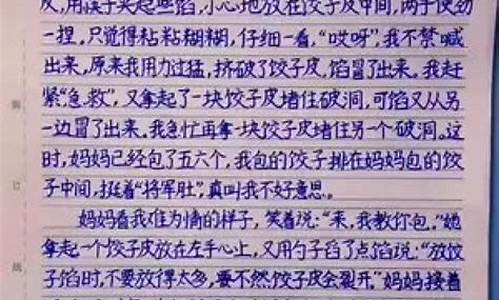 皮，用筷子夹起些馅，小心地放在饺子皮中间，两手使劲
一捏，只觉得粘粘糊糊，仔细一看，“哎呀”，我不禁喊
出来，原来我用力过猛，挤破了饺子皮，馅冒了出来。我赶
紧“急救”，又拿起了一块饺子皮堵住破洞，可馅又从另
一边冒了出来。我急忙再拿一块饺子皮堵住另一个破洞。这
时，妈妈已经包了五六个，我包的饺子排在妈妈包的饺
子中间，挺着“将军肚”，真叫我不好意思。
妈妈看我难为情的样子，笑着说：“来，我教你包。”她
拿起一个饺子皮放在左手心上，又用勺子舀了点馅说：“放饺
子馅时，不要放得太多，要不然，饺子皮会裂开。”妈妈接着
订
线